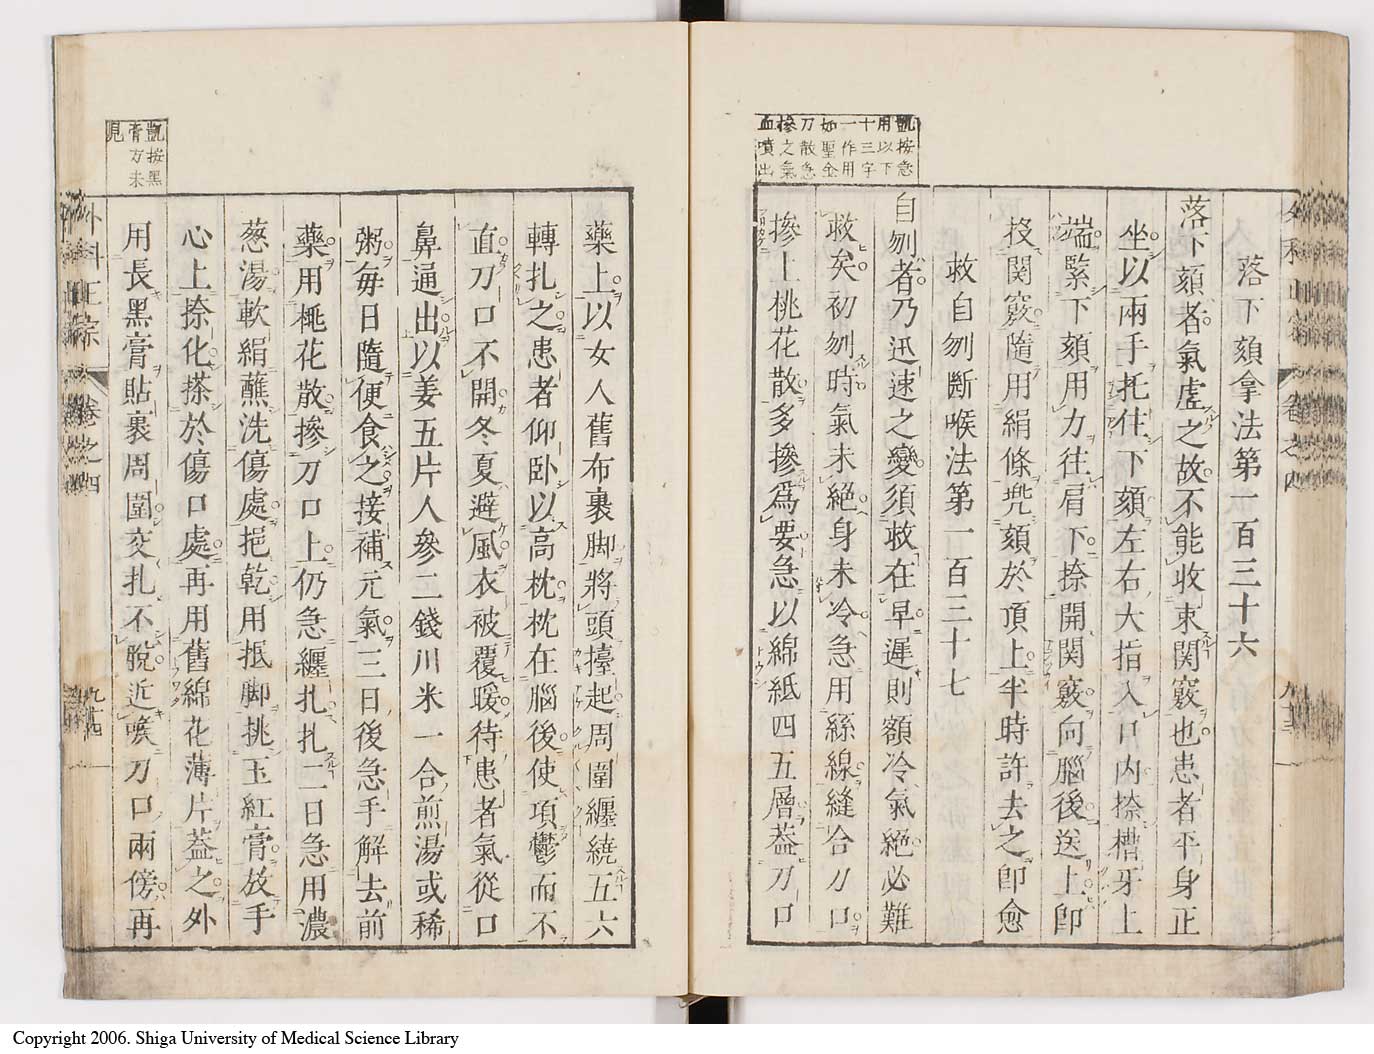 凱按急
用以下
十三字
一作用
如聖金
刀散急
摻之氣
血噴出
落下頦拿法第一百三十六
落下頦者氣虛之故不能收束関竅也患者平身正
坐以兩手托住下頦左右大指入口内捺槽牙上
端緊下頦用力往肩下捺開関竅向腦後送上即
投関竅隨用絹條兠頦於頂上半時許去之即愈
救自刎斷喉法第一百三十七
自刎者乃迅速之變須救在早遲則額冷氣絶必難
救矣初刎時氣未絶身未冷急用絲線縫合刀口
摻上桃花散多摻爲要急以綿紙四五層葢刀口
凱按黑
膏方未
見
藥上以女人舊布裹脚將頭擡起周圍纏繞五六
轉扎之患者仰卧以高枕枕在腦後使項鬱而不
直刀口不開冬夏避風衣被覆暖待患者氣從口
鼻通出以姜五片人參二錢川米一合煎湯或稀
粥毎日隨便食之接補元氣三日後急手解去前
藥用桃花散摻刀口上仍急纏扎扎二日急用濃
葱湯軟絹蘸洗傷處挹乾用抵脚挑玉紅膏放手
心上捺化搽於傷口處再用舊綿花薄片葢之外
用長黑膏貼裹周圍交扎不脫近喉刀口兩傍再
外科正宗
卷之四
九十四
Copyright 2006. Shiga University of Medical Science Library